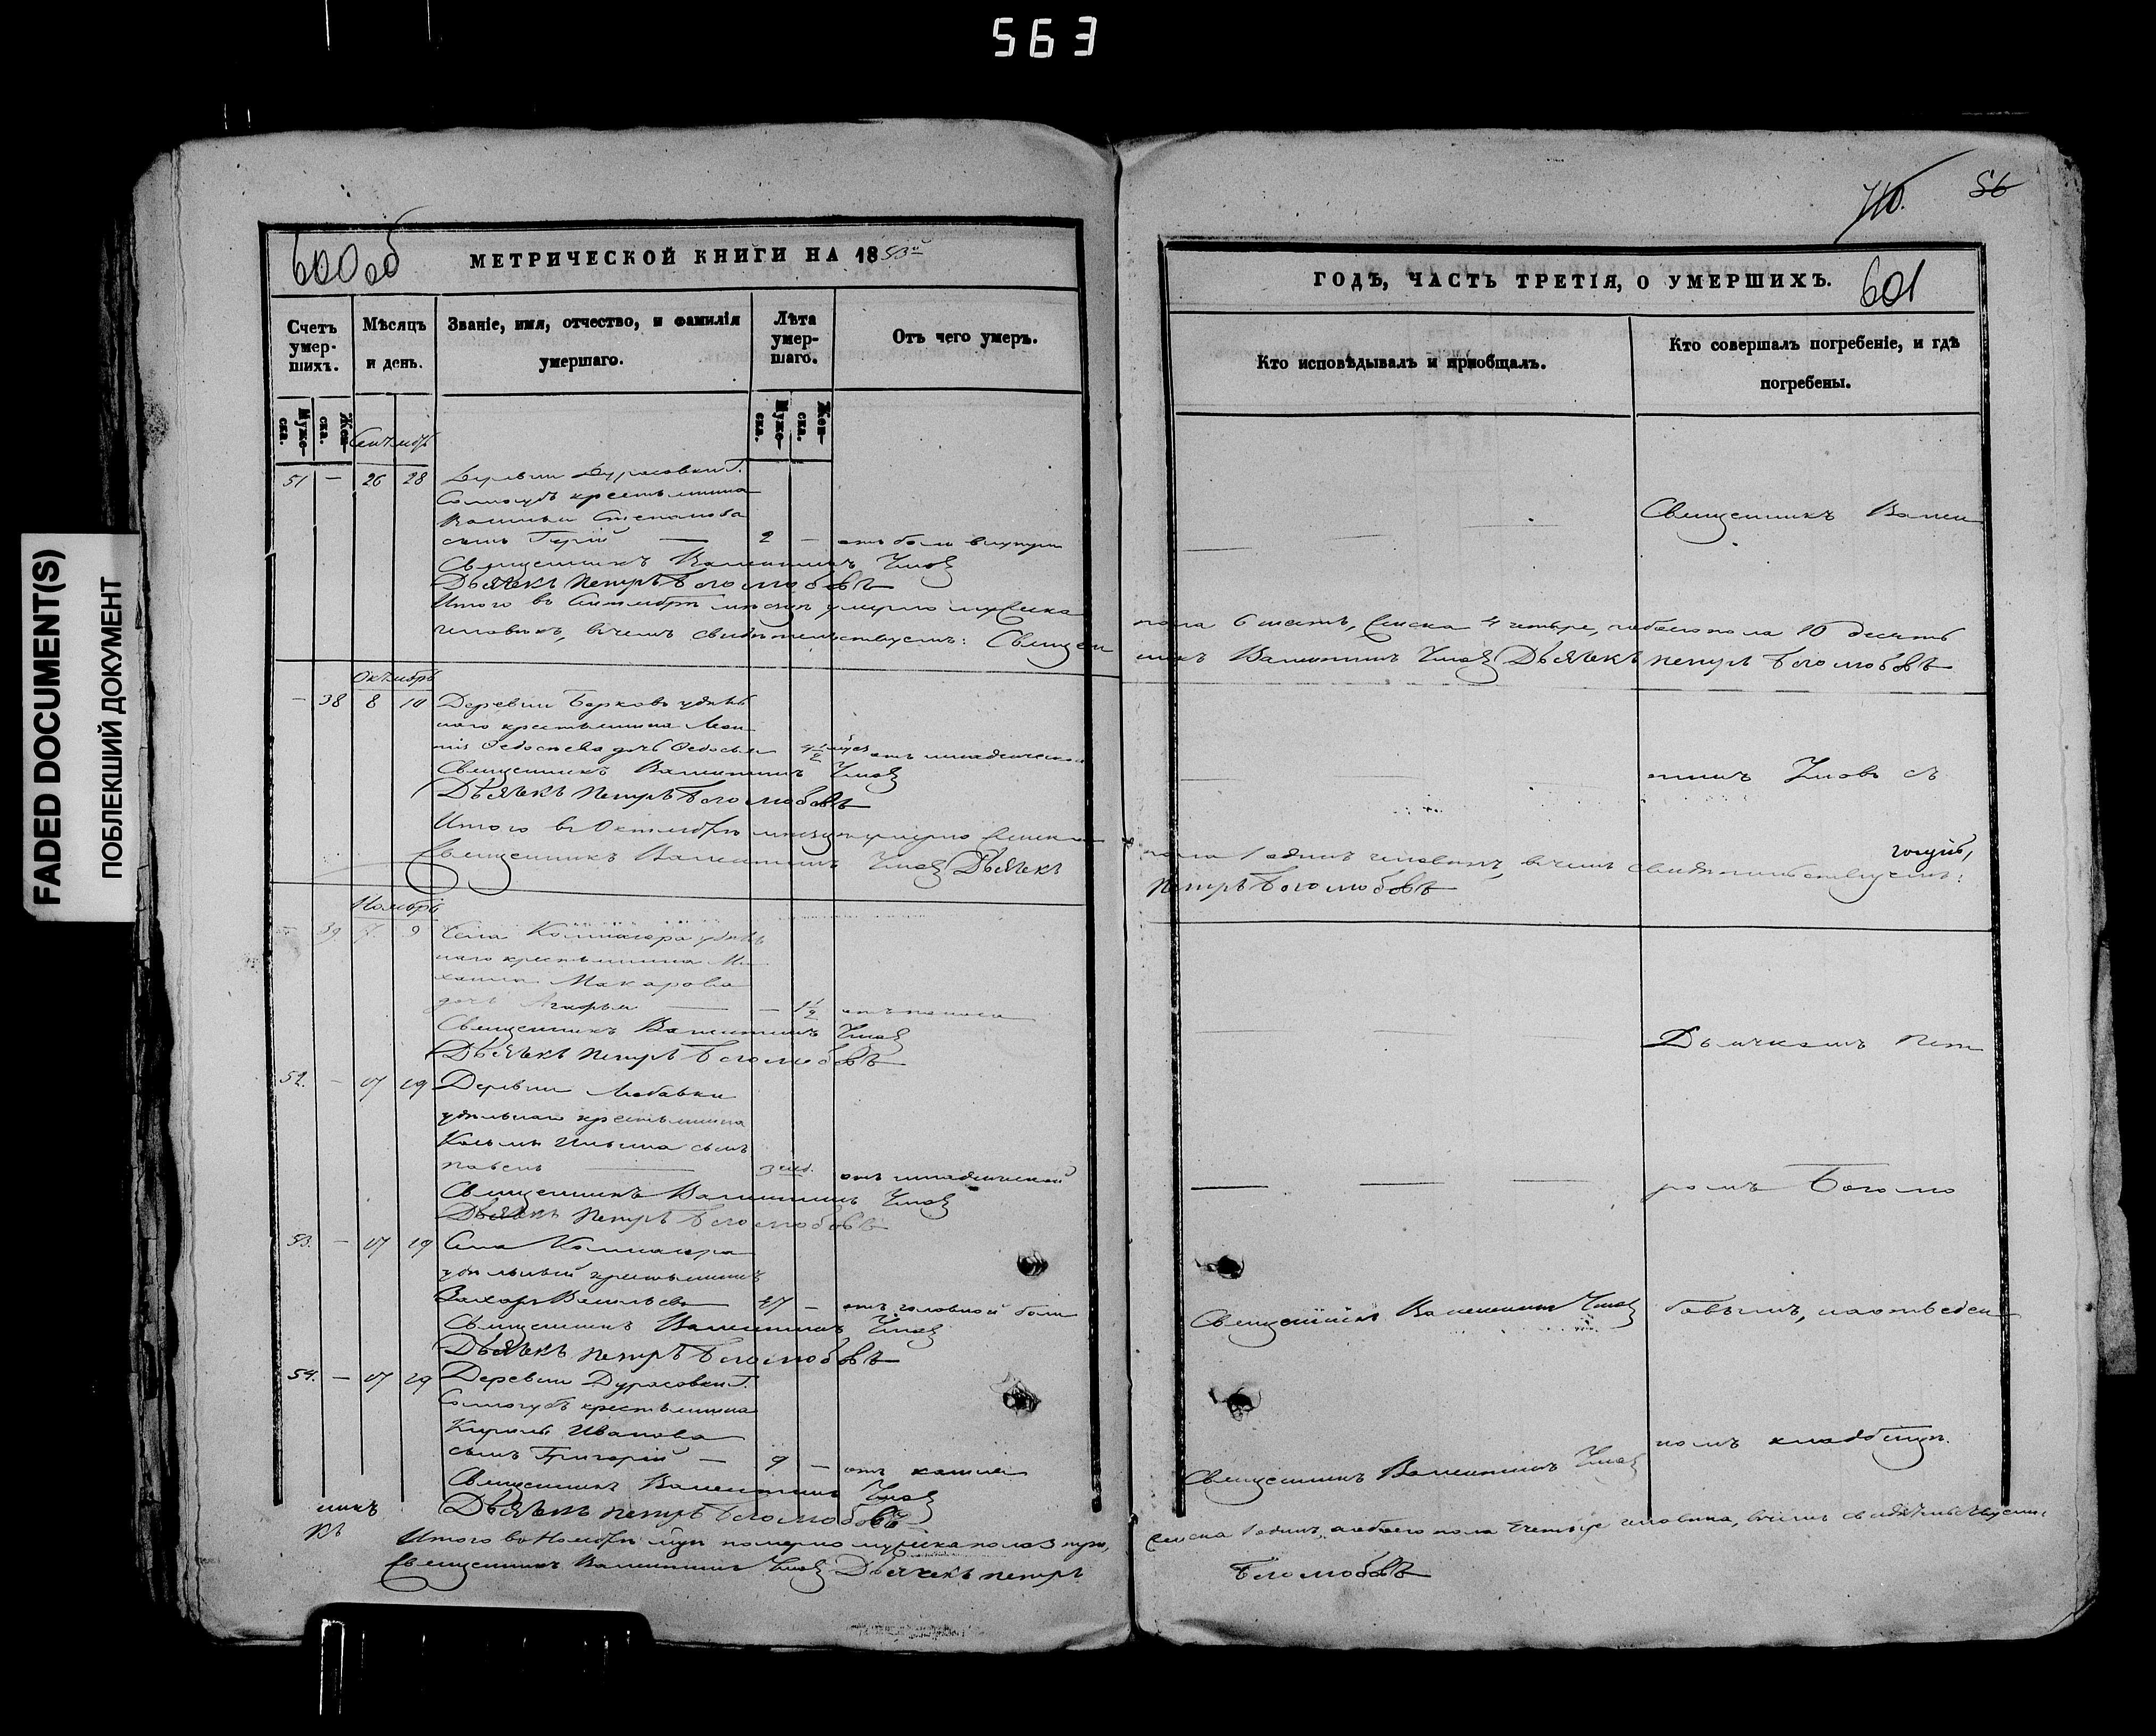 563
FADED DOCUMENT(S)
ПОБЛЕКШИЙ ДОКУМЕНТ
600 об
МЕТРИЧЕСКОЙ КНИГИ НА 1853й
Счетъ умер-шихъ.
Мѣсяцъ и день.
Званіе, имя, отчество, и фамилія умершаго.
Лѣта умер-шаго.
Отъ чего умеръ.
Муже-ска.
Жен-ска.
Муже-ска.
Жен-ска.
Сентябрь
51 — 26 28 Деревни Дурасовки Г.
Сологубъ крестьянина
Степанова
сынъ 2 — отъ боли внутри
Священникъ Валентинъ
Дьячекъ Петръ Боголюбовъ
Итого въ Сентябрѣ мѣсяцѣ умерло мужеска
человѣкъ, въ чемъ свидѣтельствуемъ: Священ
Октябрь
— 38 8 10 Деревни Боркова удѣль
наго крестьянина Леон
тія Федосѣева дочь Федосья 4½ отъ младенческой
Священникъ Валентинъ
Дьячекъ Петръ Боголюбовъ
Итого въ Октябрѣ мѣсяцѣ умерло женска
Священникъ Валентинъ Дьячекъ
Ноябрь
— 39 7 9 Села удѣль
наго крестьянина Ми
хаила Макарова
дочь Агафья — 1½ отъ поноса
Священникъ Валентинъ
Дьячекъ Петръ Боголюбовъ
52. — 17 19 Деревни
удѣльнаго крестьянина
Козьмы Ильина сынъ
Павелъ 3 отъ младенческой
Священникъ Валентинъ
Дьячекъ Петръ Боголюбовъ
53. — 17 19 Села
удѣльный крестьянинъ
Захаръ Васильевъ 47 — отъ головной боли
Священникъ Валентинъ
Дьячекъ Петръ Боголюбовъ
54. — 17 19 Деревни Дурасовки Г.
Сологубъ крестьянина
Кирилы Иванова
сынъ Григорій — 9 — отъ кашля
Священникъ Валентинъ
Дьячекъ Петръ Боголюбовъ
Итого въ Ноябрѣ померло мужеска пола 3 три,
Священникъ Валентинъ Дьячекъ Петръ
710.
56
ГОДЪ, ЧАСТЬ ТРЕТІЯ, О УМЕРШИХЪ.
601
Кто исповѣдывалъ и пріобщалъ.
Кто совершалъ погребеніе, и гдѣ погребены.
Священникъ Вален
пола 6 шесть, женска 4 четыре, а обоего пола 10 десять
никъ Валентинъ Дьячекъ Петръ Боголюбовъ
тинъ съ
пола 1 одинъ человѣкъ, въ чемъ свидѣтельствуемъ:
Петръ Боголюбовъ
Дьячкомъ Пет
ромъ Боголю
Священникъ Валентинъ
бовымъ, на отведен
номъ кладбищѣ.
Священникъ Валентинъ
женска 1 одинъ, а обоего пола 4 четыре человѣка, въ чемъ свидѣтельствуемъ:
Боголюбовъ